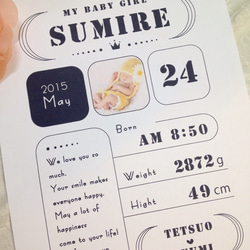 MY BABY GIRL
SUMIRE
2015
May
24
Born
AM 8:50
Weight 2872g
Hight 49 cm
We love you so
much.
Your smile makes
everyone happy.
May a lot of
happiness
come to your life!
TETSUO